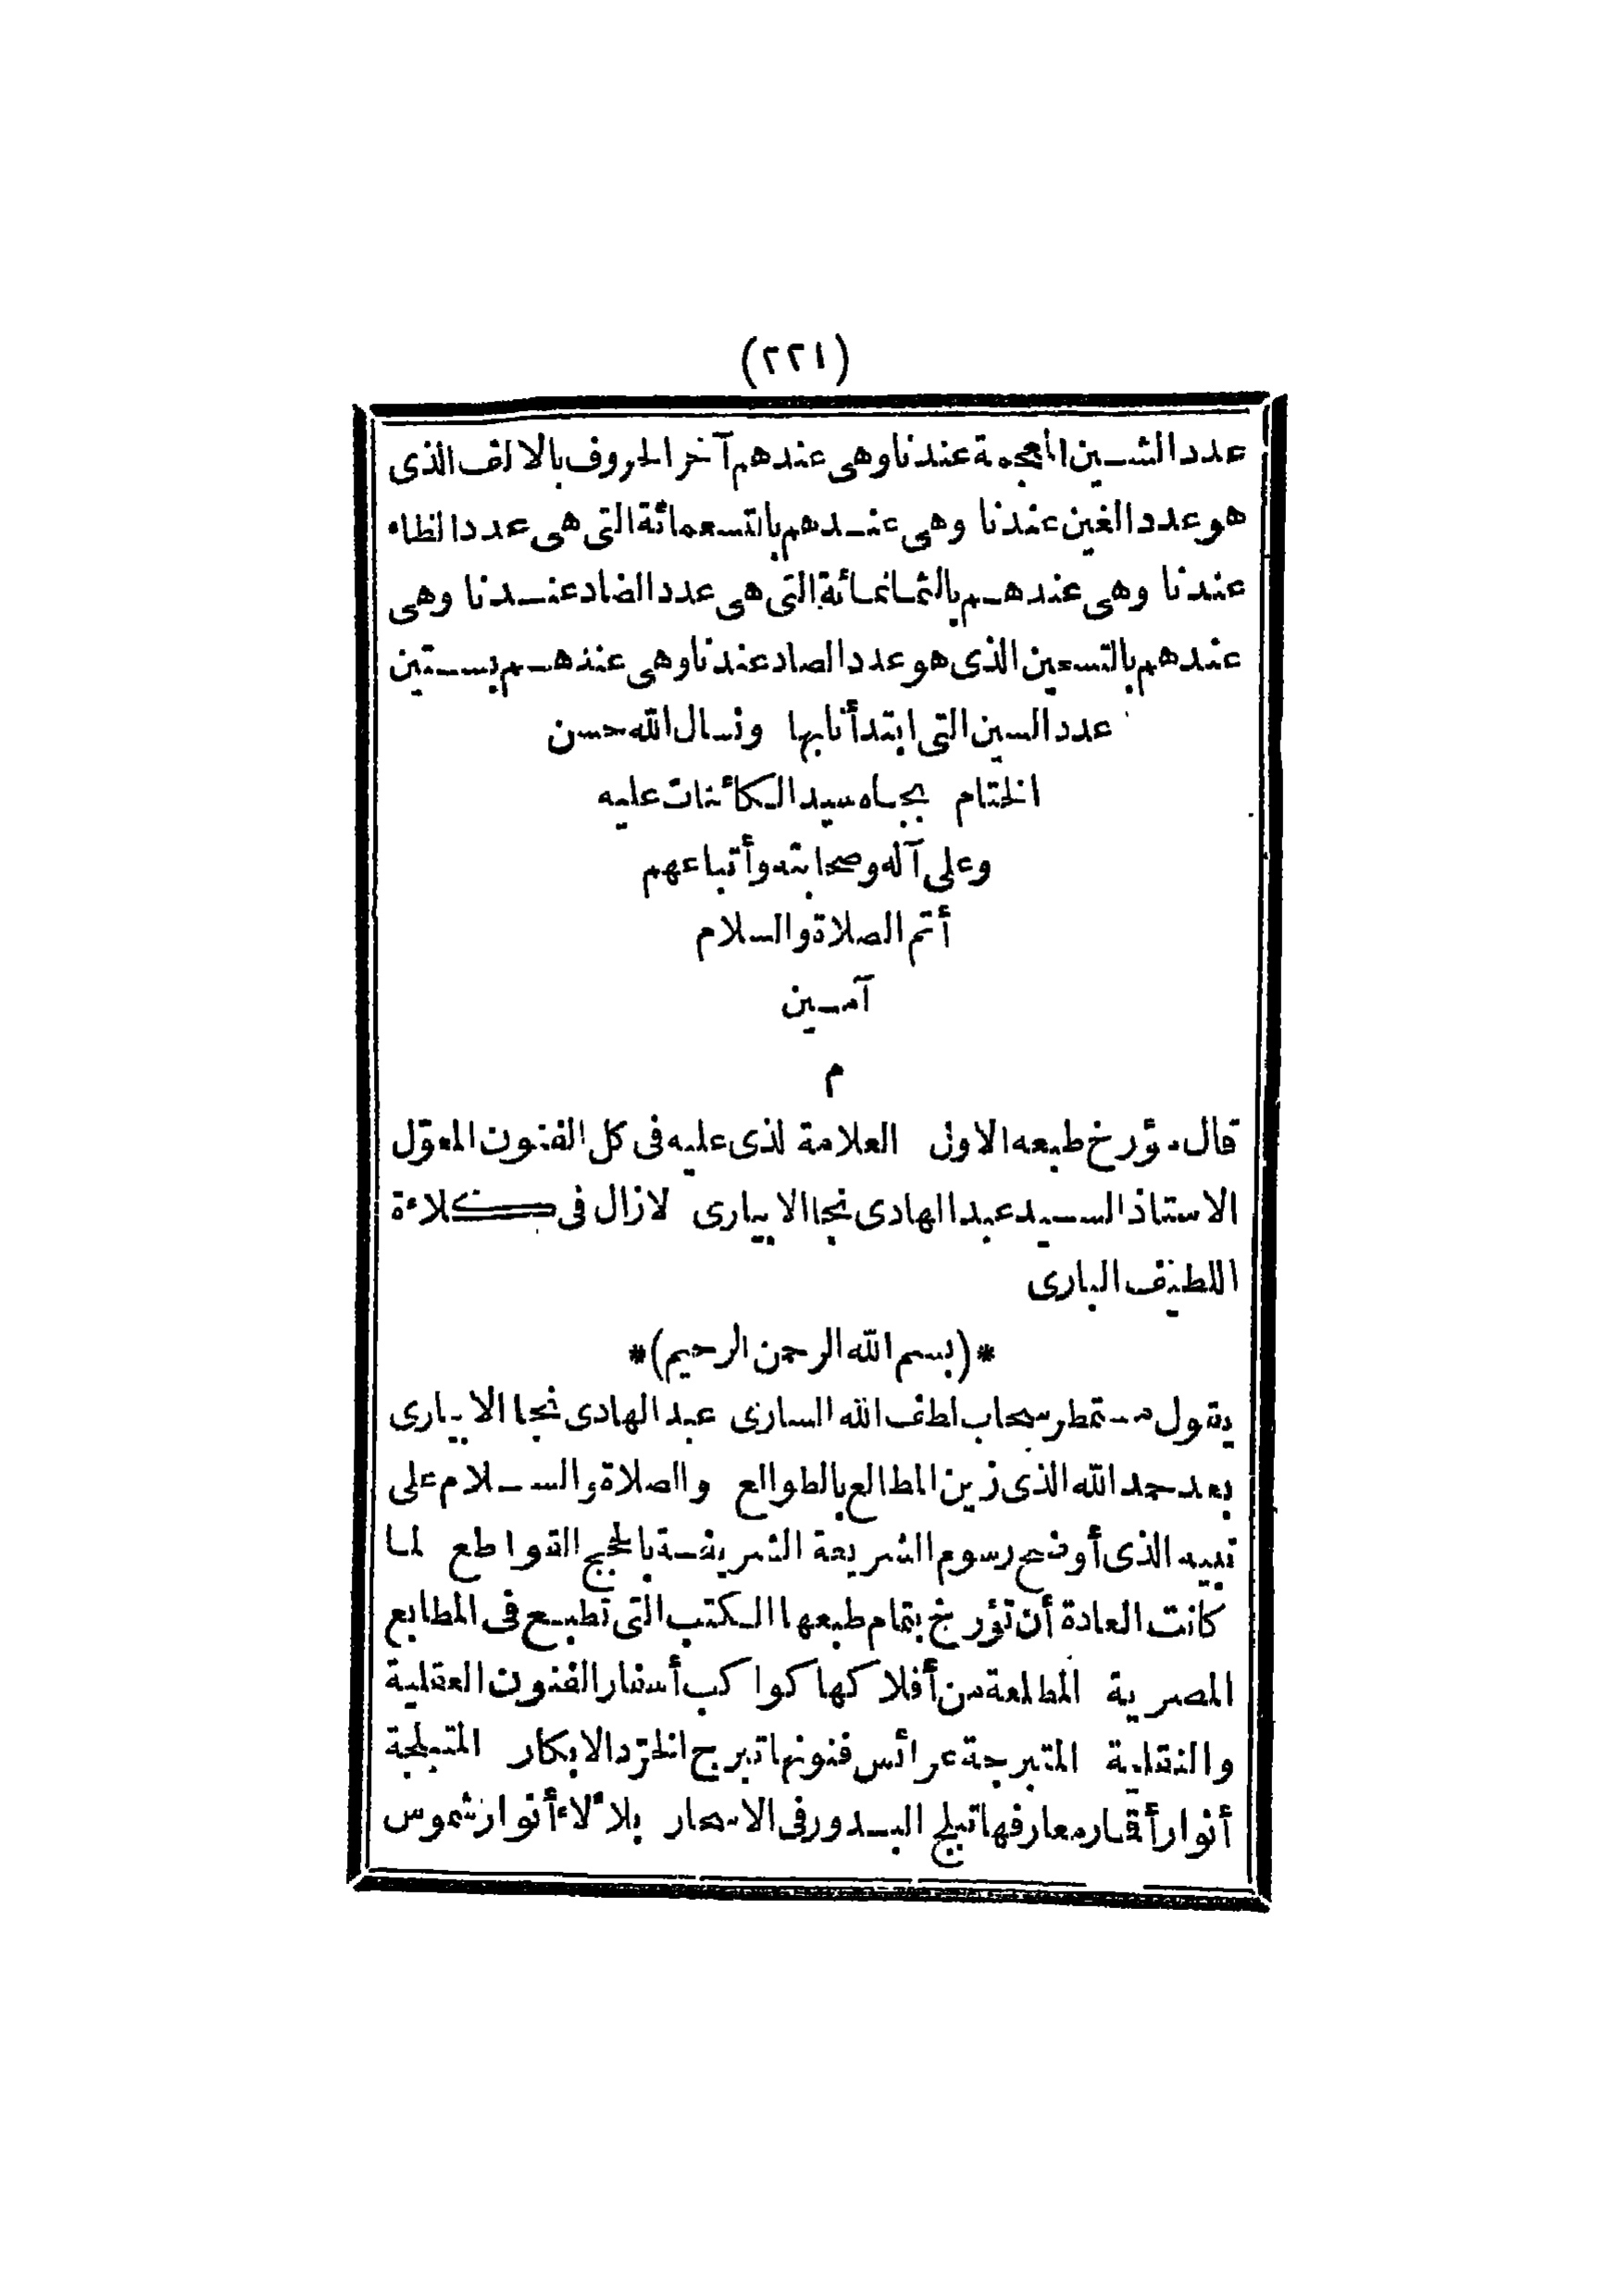 (٢٢١)
عدد الشين المعجمة عندنا وهى عندهم آخر الحروف بالالف الذى
هو عدد الغين عندنا وهى عندهم بالتسعمائة التى هى عدد الظاء
عندنا وهى عندهم بالثمانمائة التى هى عدد الضاد عندنا وهى
عندهم بالتسعين الذى هو عدد الصاد عندنا وهى عندهم بستين
عدد السين التى ابتدأنا بها ونسال الله حسن
الختام بجاه سيد الكائنات عليه
وعلى آله وصحابته وأتباعهم
أتم الصلاة والسلام
آمين
م
قال مؤرخ طبعه الاول العلامة لذى عليه فى كل الفنون المعوّل
الاستاذ السيد عبد الهادى نجا الابيارى لازال فى كلاءة
اللطيف البارى
*(بسم الله الرحمن الرحيم)*
يقول مستمطر سحاب لطف الله السارى عبد الهادى نجا الابيارى
بعد حمد الله الذى زين المطالع بالطوالع والصلاة والسلام على
نبيه الذى أوضح رسوم الشريعة الشريفة بالحجج القواطع لما
كانت العادة أن تؤرخ بتمام طبعها الكتب التى تطبع فى المطابع
المصرية المطلعة من أفلاكها كواكب أسفار الفنون العقلية
والنقلية المتبرجة عرائس فنونها تبرج الخرّد الابكار المتبلجة
أنوار أقمار معارفها تبلج البدور فى الاسحار بلاٴلاء أنوار شموس